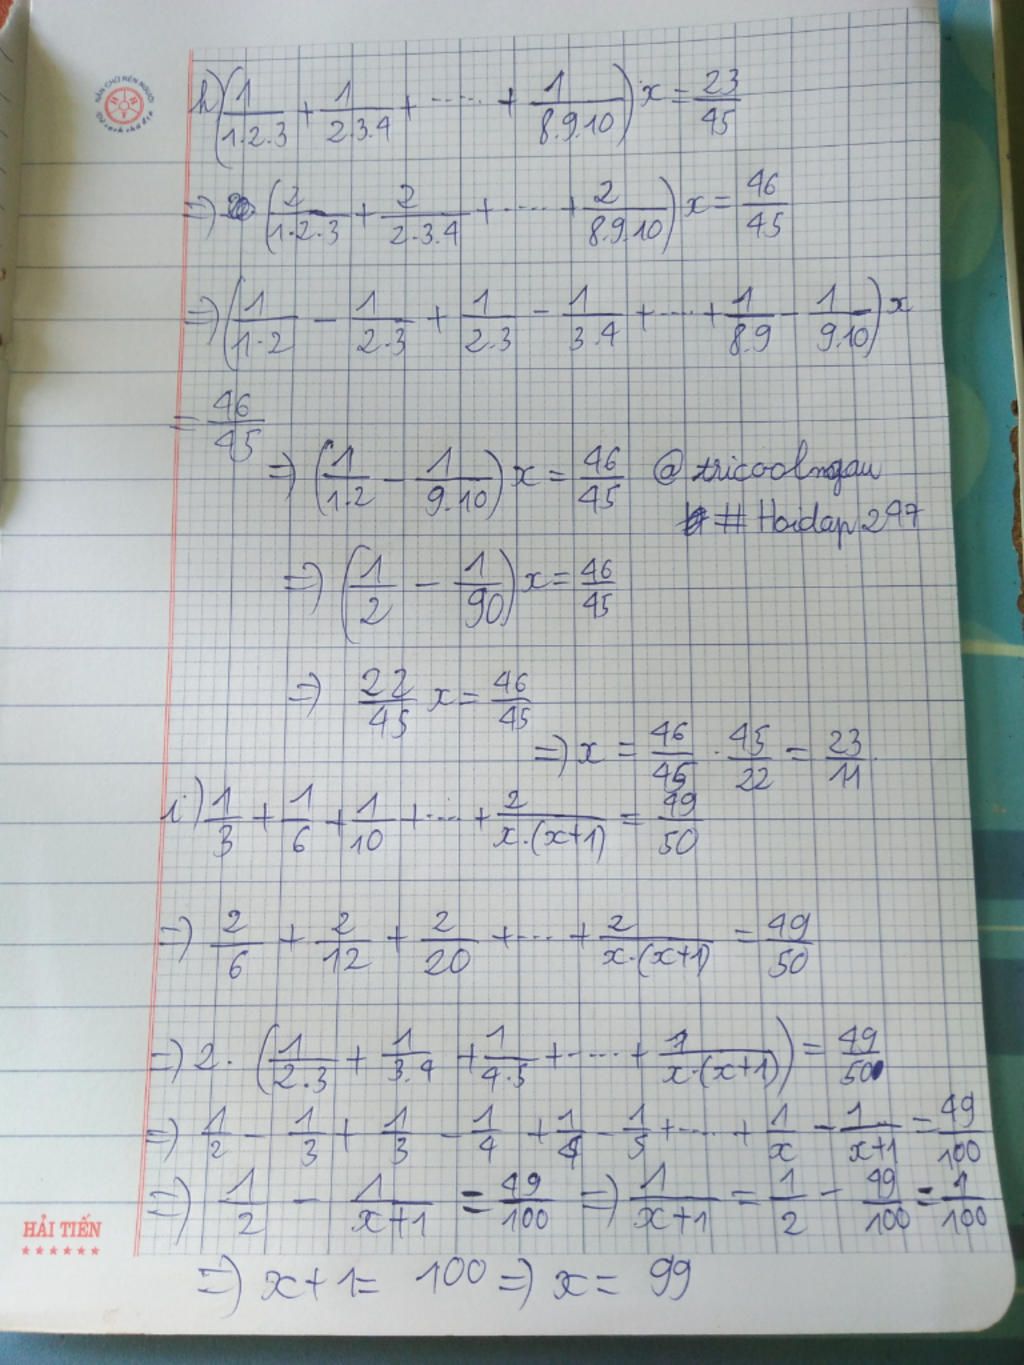 h) (1/1·2·3 + 1/2.3.4 + ..... + 1/8.9.10) x = 23/45
=) (2/1·2·3 + 2/2.3.4 + .... + 2/8.9.10) x = 46/45
=) (1/1·2 - 1/2·3 + 1/2.3 - 1/3.4 + ... + 1/8.9 - 1/9.10) x
= 46/45
=) (1/1·2 - 1/9.10) x = 46/45 @tricoolngau
# Hoidap247
=) (1/2 - 1/90) x = 46/45
=) 22/45 x = 46/45
=) x = 46/45 · 45/22 = 23/11
i) 1/3 + 1/6 + 1/10 + .... + 2/x.(x+1) = 49/50
=) 2/6 + 2/12 + 2/20 + .... + 2/x.(x+1) = 49/50
=) 2. (1/2.3 + 1/3.4 + 1/4.5 + ..... + 1/x.(x+1)) = 49/50
=) 1/2 - 1/3 + 1/3 - 1/4 + 1/4 - 1/5 + .... + 1/x - 1/x+1 = 49/100
=) 1/2 - 1/x+1 = 49/100 =) 1/x+1 = 1/2 - 49/100 = 1/100
=) x+1 = 100 =) x = 99
HẢI TIẾN